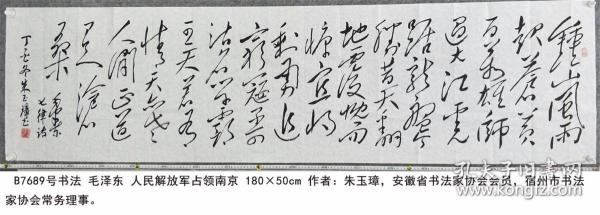 鍾山風雨
起蒼黄
百万雄師
过大江虎
踞龍盤今
勝昔天翻
地覆慨而
慷宜将
剩勇追
窮寇不可
沽名学霸
王天若有
情天亦老
人间正道
是滄
桑
毛澤東
七律诗
丁酉冬朱玉璋书
B7689号书法 毛泽东 人民解放军占领南京 180×50cm 作者：朱玉璋，安徽省书法家协会会员，宿州市书法
家协会常务理事。